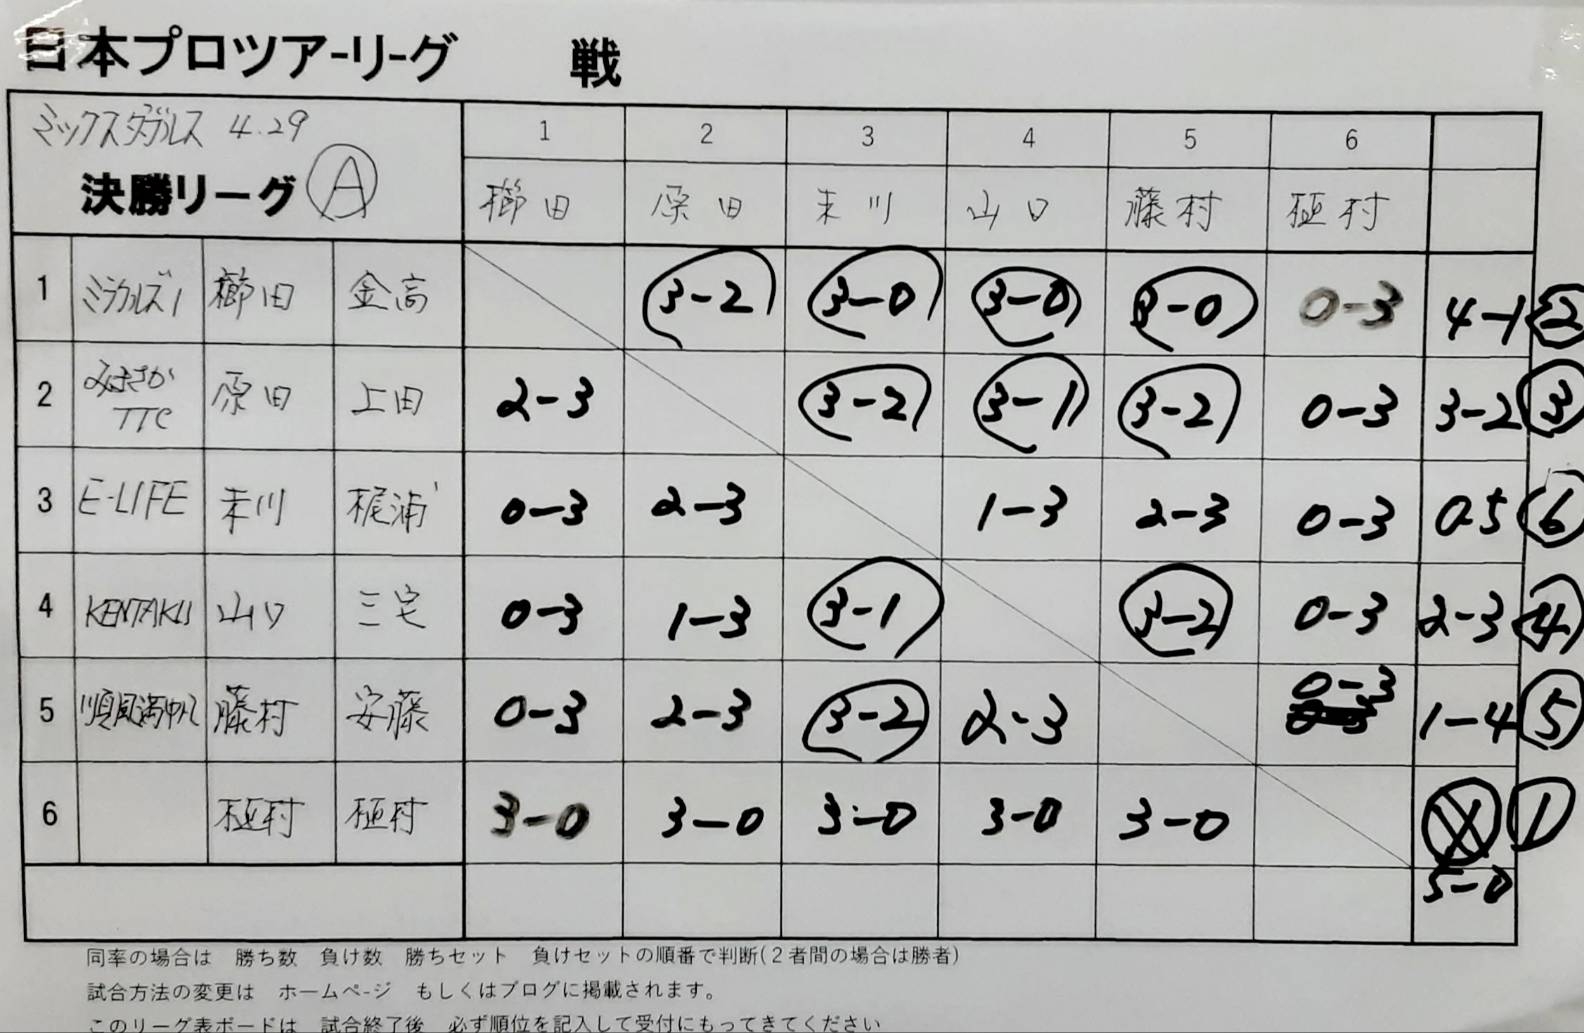 日本プロツアーリーグ 戦
ミックスダブルス 4.29
決勝リーグ A
1 2 3 4 5 6
櫛田 原田 末川 山口 藤村 植村
1 ミラクルズ1 櫛田 金高 3-2 3-0 3-0 3-0 0-3 4-1 2
2 みまさかTTC 原田 上田 2-3 3-2 3-1 3-2 0-3 3-2 3
3 E-LIFE 末川 梶浦 0-3 2-3 1-3 2-3 0-3 0-5 6
4 KENTAKU 山口 三宅 0-3 1-3 3-1 3-2 0-3 2-3 4
5 順風満帆 藤村 安藤 0-3 2-3 3-2 2-3 0-3 1-4 5
6 植村 植村 3-0 3-0 3-0 3-0 3-0 1
5-0
同率の場合は 勝ち数 負け数 勝ちセット 負けセットの順番で判断(2者間の場合は勝者)
試合方法の変更は ホームページ もしくはブログに掲載されます。
このリーグ表ボードは 試合終了後 必ず順位を記入して受付にもってきてください